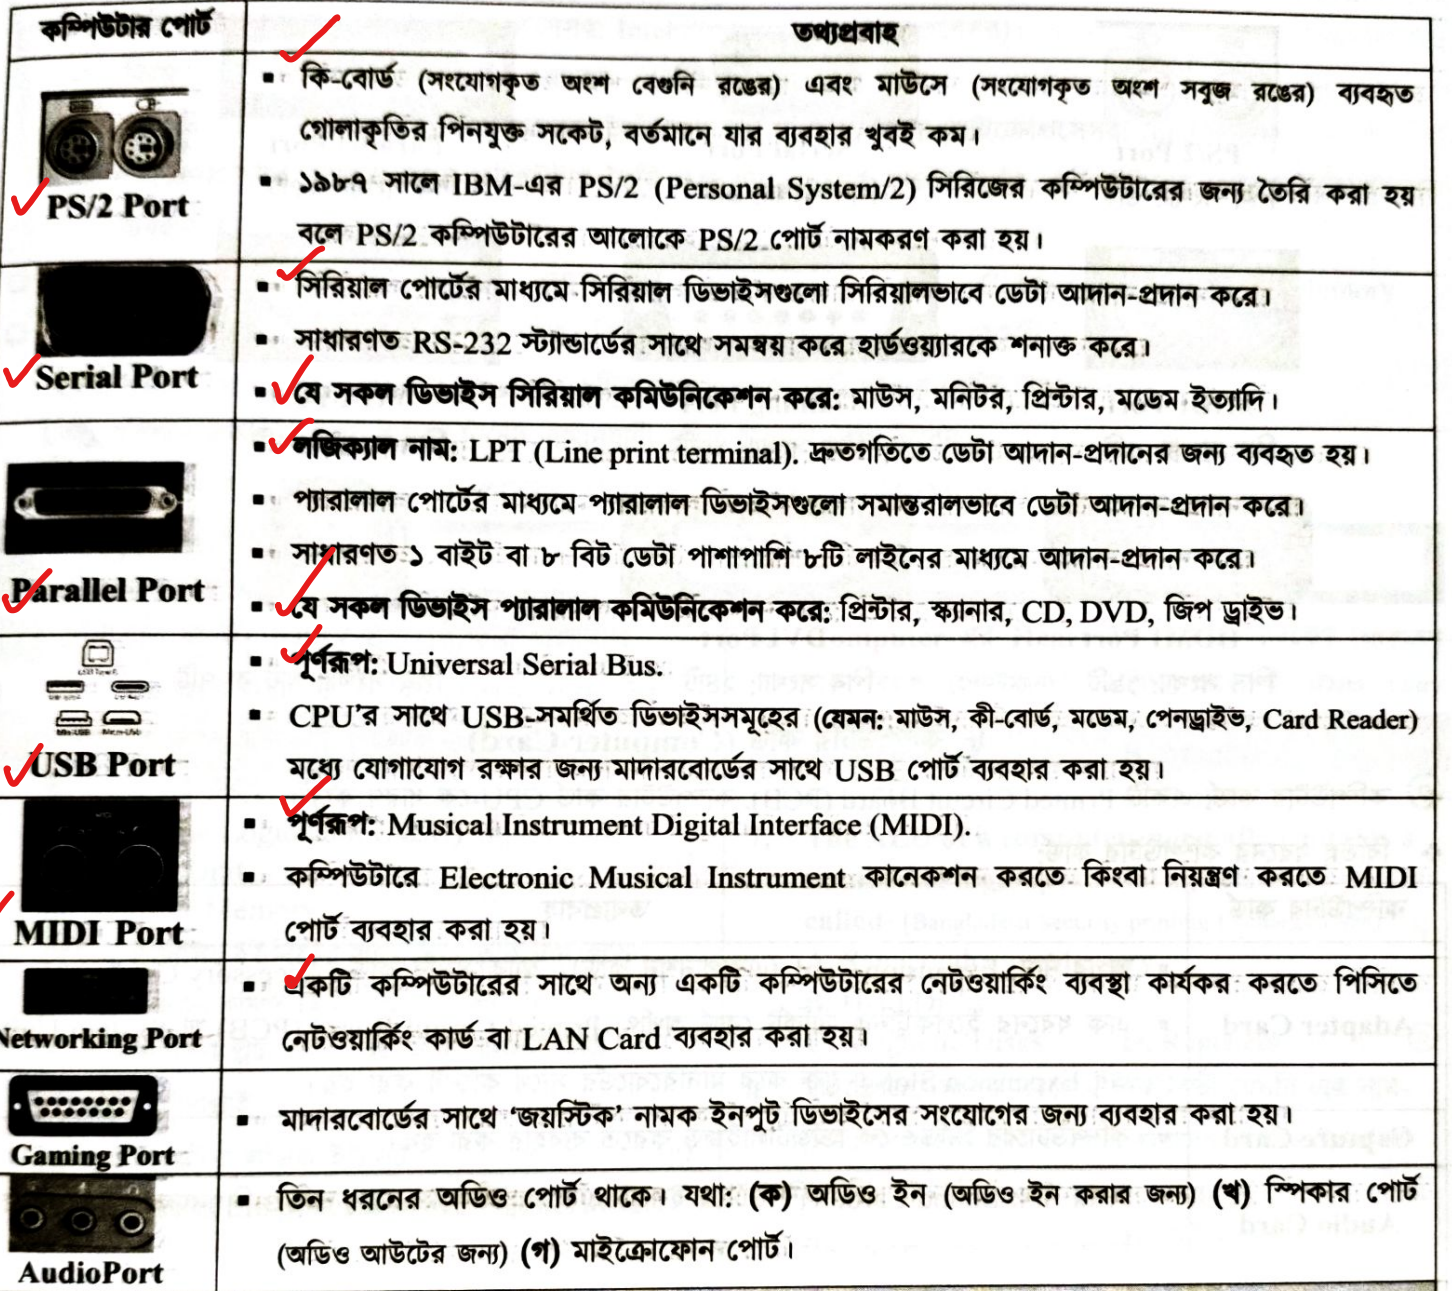 কম্পিউটার পোর্ট
তথ্যপ্রবাহ
▪ কি-বোর্ড (সংযোগকৃত অংশ বেগুনি রঙের) এবং মাউসে (সংযোগকৃত অংশ সবুজ রঙের) ব্যবহৃত
গোলাকৃতির পিনযুক্ত সকেট, বর্তমানে যার ব্যবহার খুবই কম।
▪ ১৯৮৭ সালে IBM-এর PS/2 (Personal System/2) সিরিজের কম্পিউটারের জন্য তৈরি করা হয়
বলে PS/2 কম্পিউটারের আলোকে PS/2 পোর্ট নামকরণ করা হয়।
PS/2 Port
▪ সিরিয়াল পোর্টের মাধ্যমে সিরিয়াল ডিভাইসগুলো সিরিয়ালভাবে ডেটা আদান-প্রদান করে।
▪ সাধারণত RS-232 স্ট্যান্ডার্ডের সাথে সমন্বয় করে হার্ডওয়্যারকে শনাক্ত করে।
▪ যে সকল ডিভাইস সিরিয়াল কমিউনিকেশন করে: মাউস, মনিটর, প্রিন্টার, মডেম ইত্যাদি।
Serial Port
▪ লজিক্যাল নাম: LPT (Line print terminal). দ্রুতগতিতে ডেটা আদান-প্রদানের জন্য ব্যবহৃত হয়।
▪ প্যারালাল পোর্টের মাধ্যমে প্যারালাল ডিভাইসগুলো সমান্তরালভাবে ডেটা আদান-প্রদান করে।
▪ সাধারণত ১ বাইট বা ৮ বিট ডেটা পাশাপাশি ৮টি লাইনের মাধ্যমে আদান-প্রদান করে।
▪ যে সকল ডিভাইস প্যারালাল কমিউনিকেশন করে: প্রিন্টার, স্ক্যানার, CD, DVD, জিপ ড্রাইভ।
Parallel Port
▪ পূর্ণরূপ: Universal Serial Bus.
▪ CPU'র সাথে USB-সমর্থিত ডিভাইসসমূহের (যেমন: মাউস, কী-বোর্ড, মডেম, পেনড্রাইভ, Card Reader)
মধ্যে যোগাযোগ রক্ষার জন্য মাদারবোর্ডের সাথে USB পোর্ট ব্যবহার করা হয়।
USB Port
▪ পূর্ণরূপ: Musical Instrument Digital Interface (MIDI).
▪ কম্পিউটারে Electronic Musical Instrument কানেকশন করতে কিংবা নিয়ন্ত্রণ করতে MIDI
পোর্ট ব্যবহার করা হয়।
MIDI Port
▪ একটি কম্পিউটারের সাথে অন্য একটি কম্পিউটারের নেটওয়ার্কিং ব্যবস্থা কার্যকর করতে পিসিতে
নেটওয়ার্কিং কার্ড বা LAN Card ব্যবহার করা হয়।
Networking Port
▪ মাদারবোর্ডের সাথে 'জয়স্টিক' নামক ইনপুট ডিভাইসের সংযোগের জন্য ব্যবহার করা হয়।
Gaming Port
▪ তিন ধরনের অডিও পোর্ট থাকে। যথা: (ক) অডিও ইন (অডিও ইন করার জন্য) (খ) স্পিকার পোর্ট
(অডিও আউটের জন্য) (গ) মাইক্রোফোন পোর্ট।
AudioPort